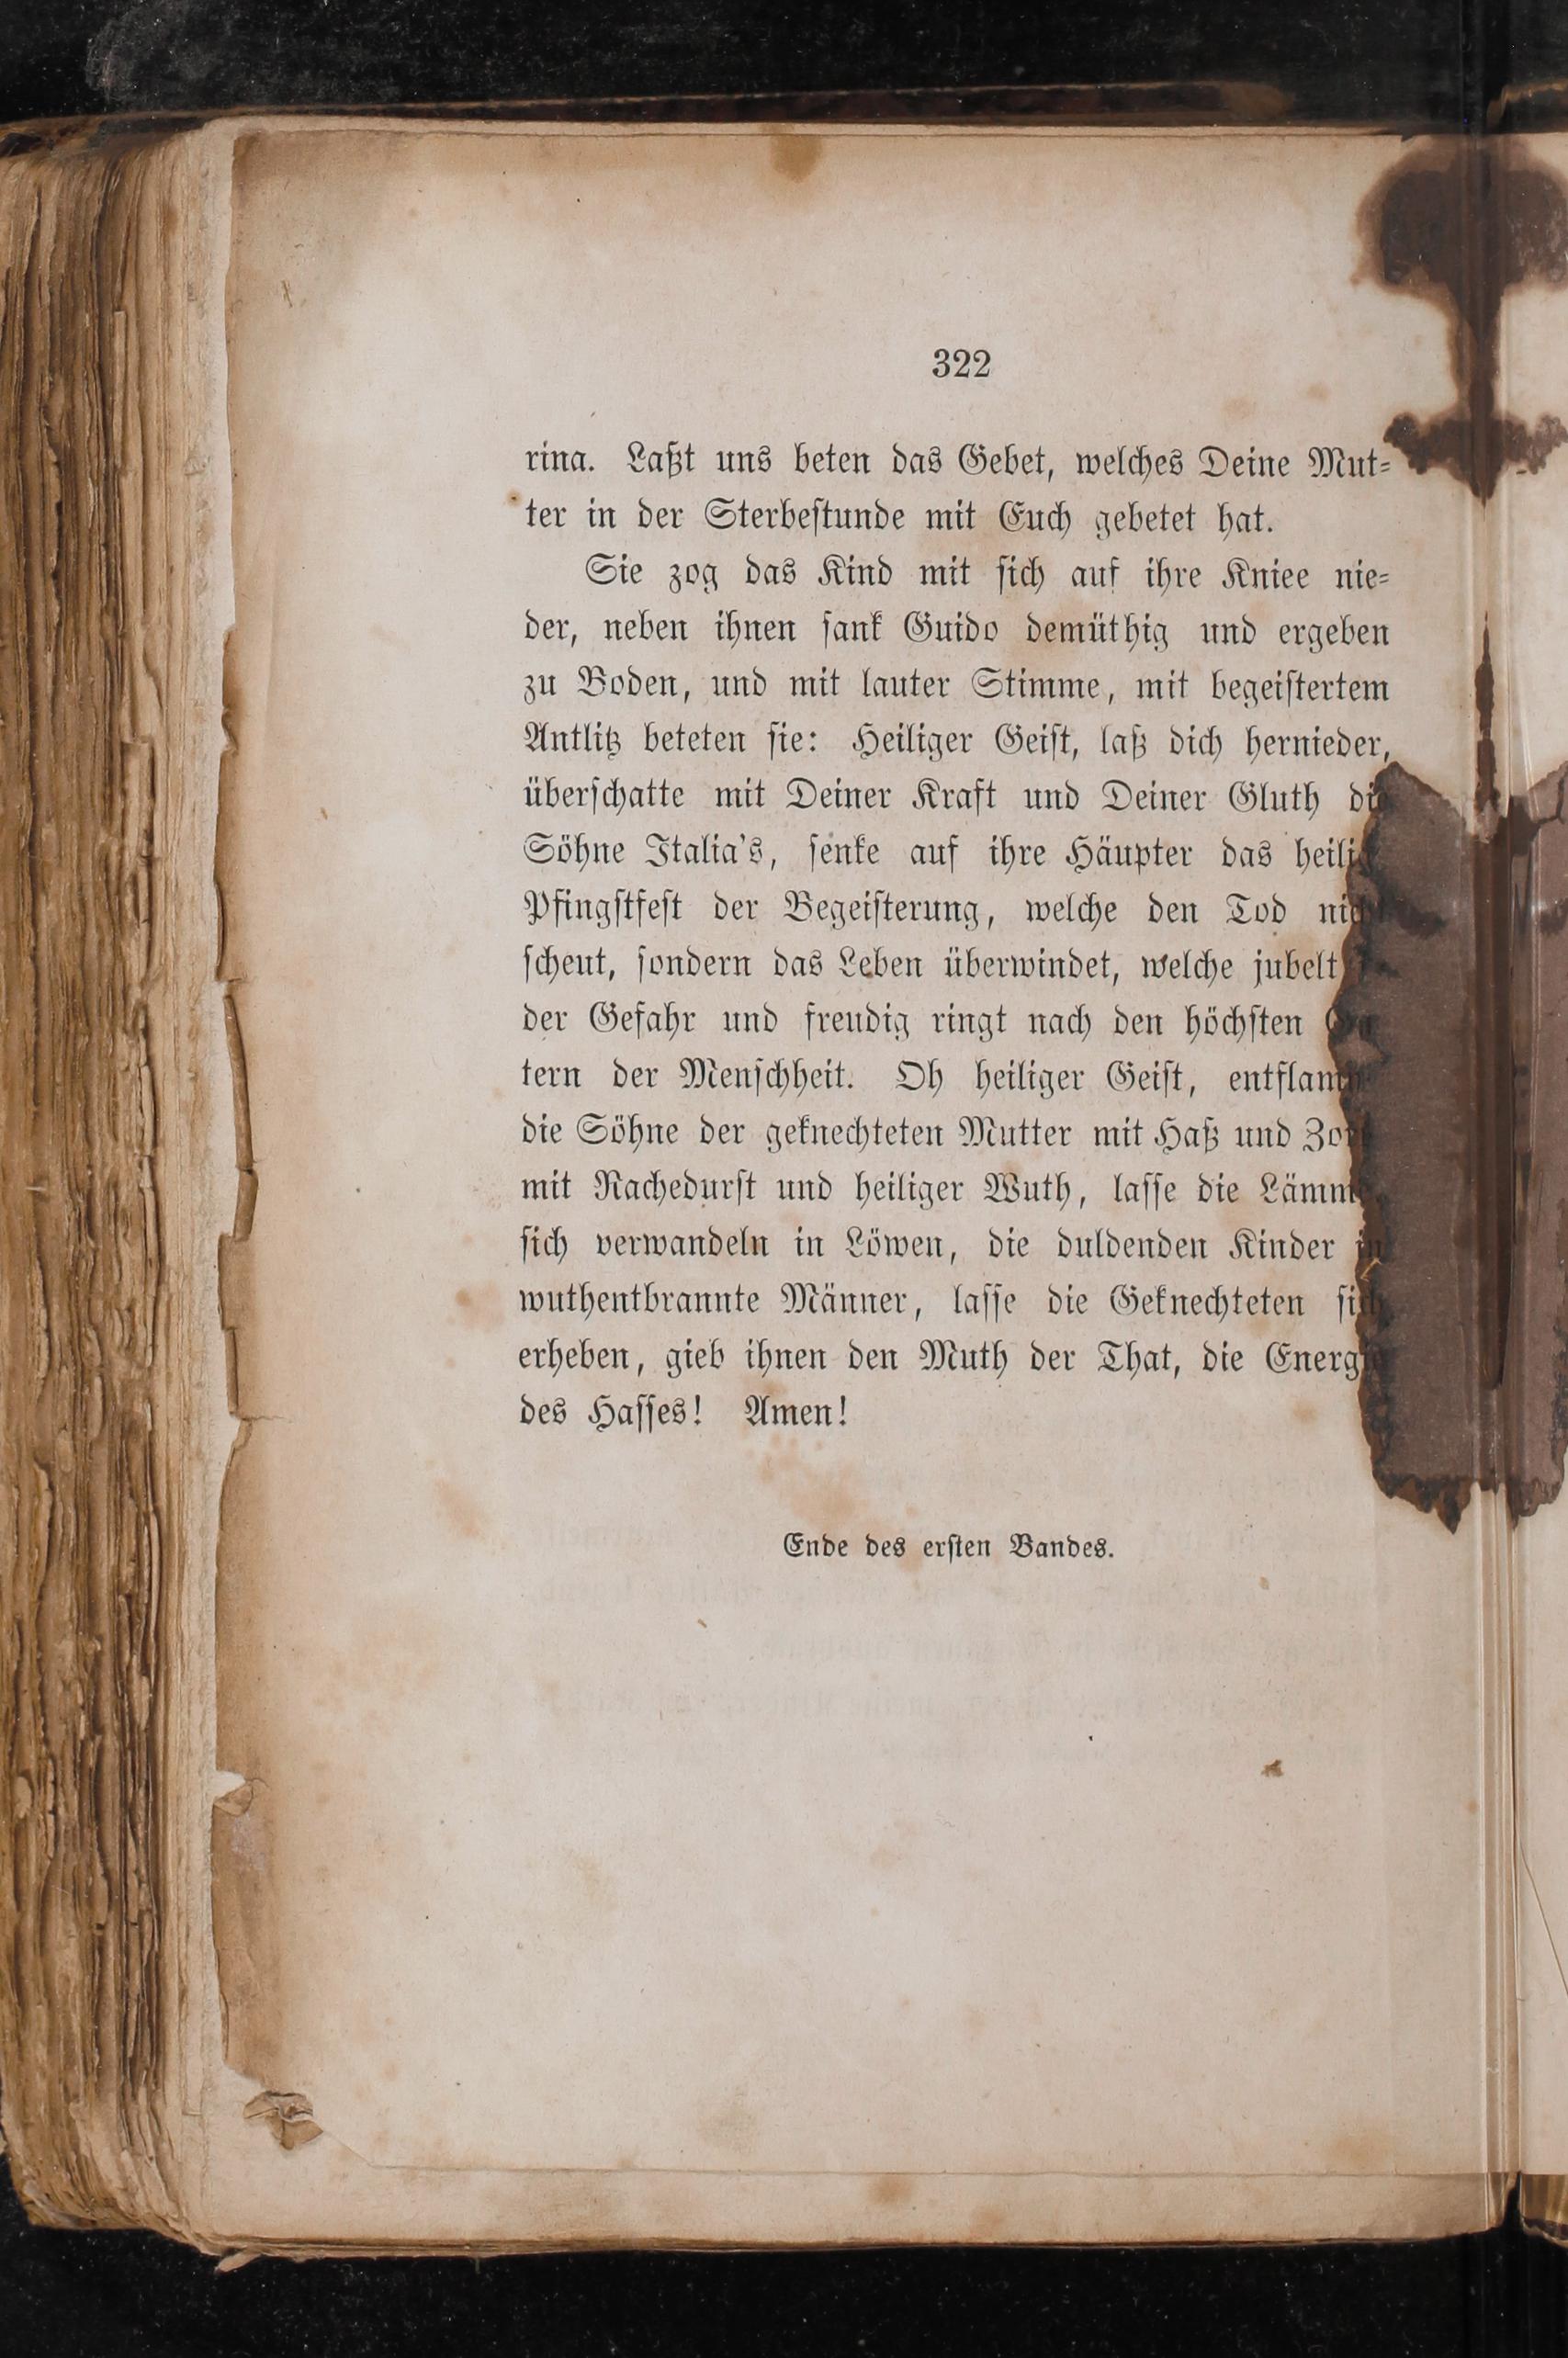 322
rina. Laßt uns beten das Gebet, welches Deine Mut-
ter in der Sterbestunde mit Euch gebetet hat.
Sie zog das Kind mit sich auf ihre Kniee nie-
der, neben ihnen sank Guido demüthig und ergeben
zu Boden, und mit lauter Stimme, mit begeistertem
Antlitz beteten sie: Heiliger Geist, laß dich hernieder,
überschatte mit Deiner Kraft und Deiner Gluth die
Söhne Italia's, senke auf ihre Häupter das
Pfingstfest der Begeisterung, welche den Tod nicht
scheut, sondern das Leben überwindet, welche jubelt
der Gefahr und freudig ringt nach den höchsten
tern der Menschheit. Oh heiliger Geist,
die Söhne der geknechteten Mutter mit Haß und
mit Rachedurst und heiliger Wuth, lasse die
sich verwandeln in Löwen, die duldenden Kinder in
wuthentbrannte Männer, lasse die Geknechteten sich
erheben, gieb ihnen den Muth der That, die Energie
des Hasses! Amen!
Ende des ersten Bandes.